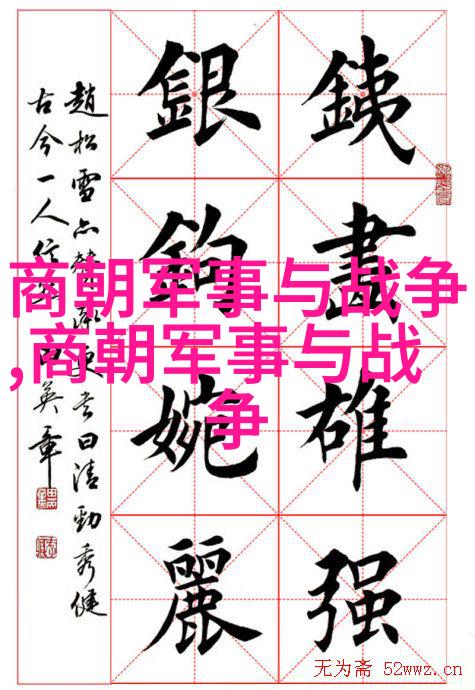 銕畫雄强
銀鉤婉麗
趙松雪 曰清勁秀健
古今一人信 田英章
商朝军事与战争
,商朝军事与战
争
无为斋 52wwz.cn